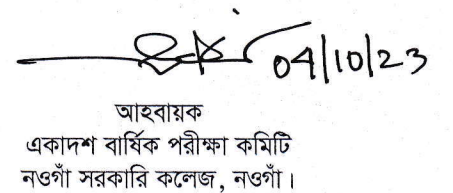 04/10/23
আহবায়ক
একাদশ বার্ষিক পরীক্ষা কমিটি
নওগাঁ সরকারি কলেজ, নওগাঁ।